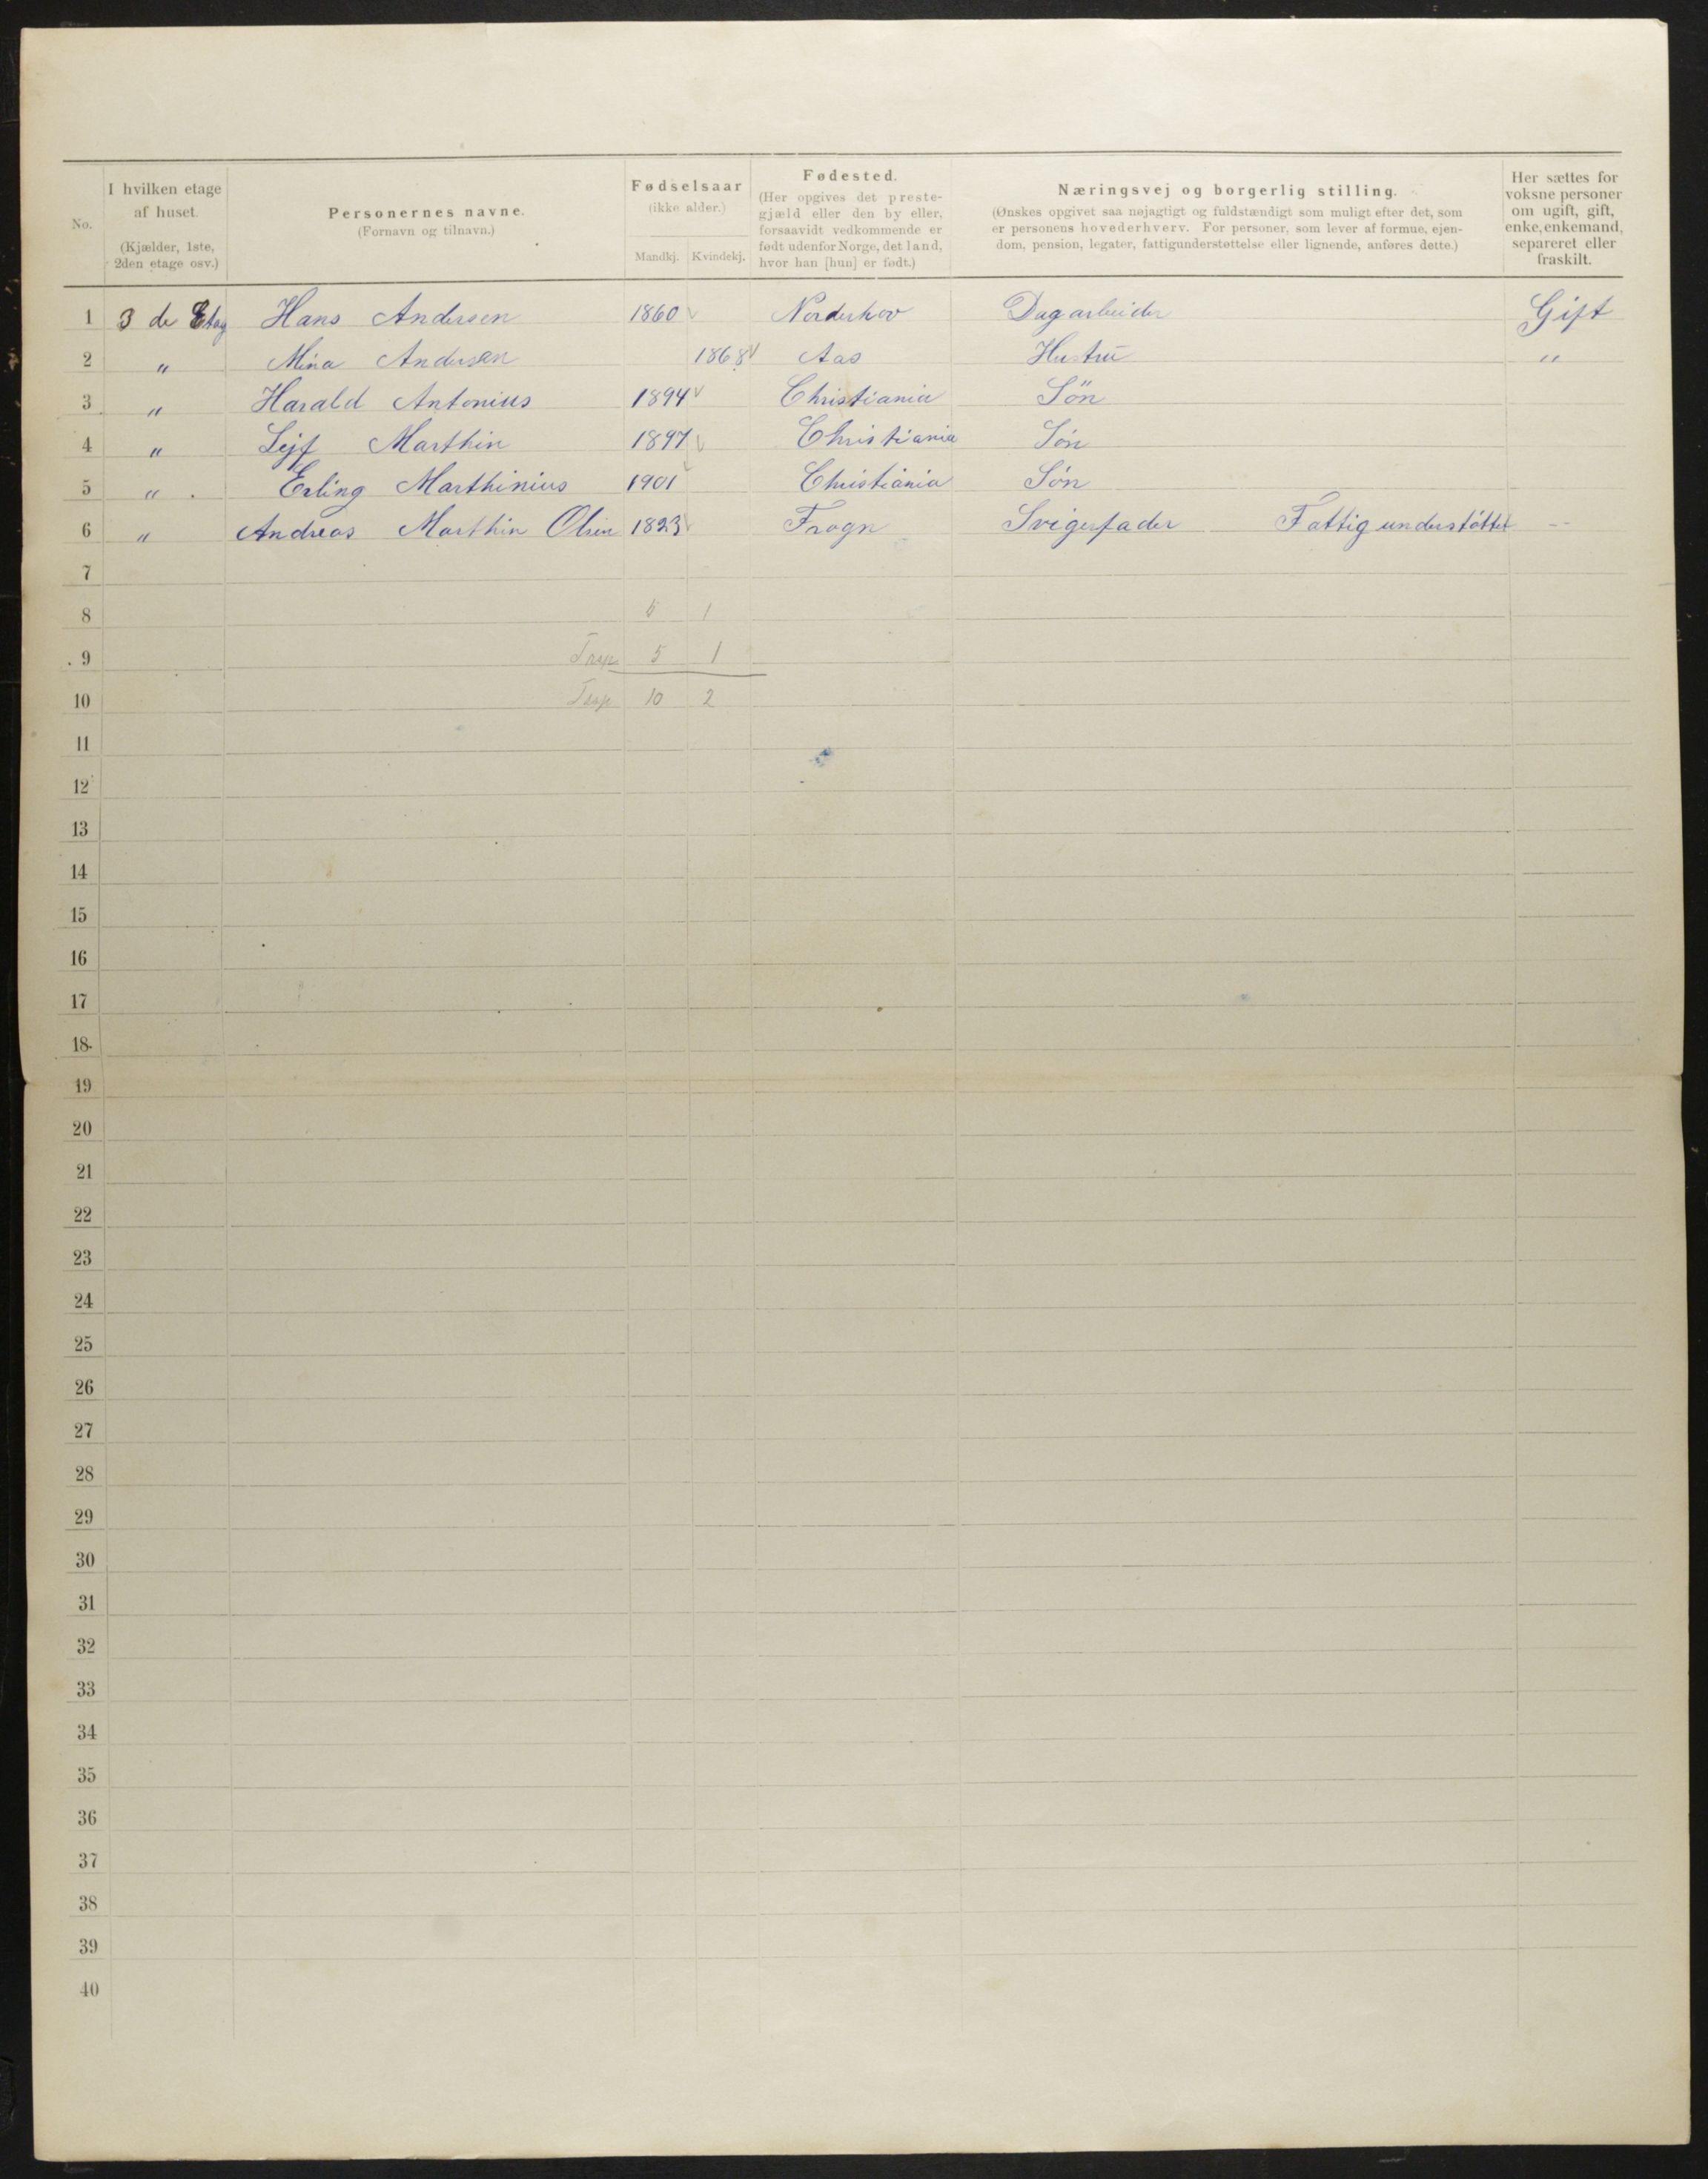 No.
I hvilken etage af huset.
(Kjælder, 1ste, 2den etage osv.)
Personernes navne.
(Fornavn og tilnavn.)
Fødselsaar
(ikke alder.)
Mandkj. Kvindekj.
Fødested.
(Her opgives det preste-
gjæld eller den by eller,
forsaavidt vedkommende er
født udenfor Norge, det land,
hvor han [hun] er født.)
Næringsvej og borgerlig stilling.
(Ønskes opgivet saa nøjagtigt og fuldstændigt som muligt efter det, som
er personens hovederhverv. For personer, som lever af formue, ejen-
dom, pension, legater, fattigunderstøttelse eller lignende, anføres dette.)
Her sættes for
voksne personer
om ugift, gift,
enke, enkemand,
separeret eller
fraskilt.
1 3 de Etag Hans Andersen 1860 Norderhov Dagarbeider Gift
2 " Mina Andersen 1868 Aas Hustru "
3 " Harald Antonius 1894 Christiania Sön
4 " Lejf Marthin 1897 Christiania Són
5 " Erling Marthinius 1901 Christiania Són
6 " Andreas Marthin Olsen 1823 Frogn Svigerfader Fattigunderstóttet --
7
8 1
9 5 1
10 10 2
11
12
13
14
15
16
17
18
19
20
21
22
23
24
25
26
27
28
29
30
31
32
33
34
35
36
37
38
39
40